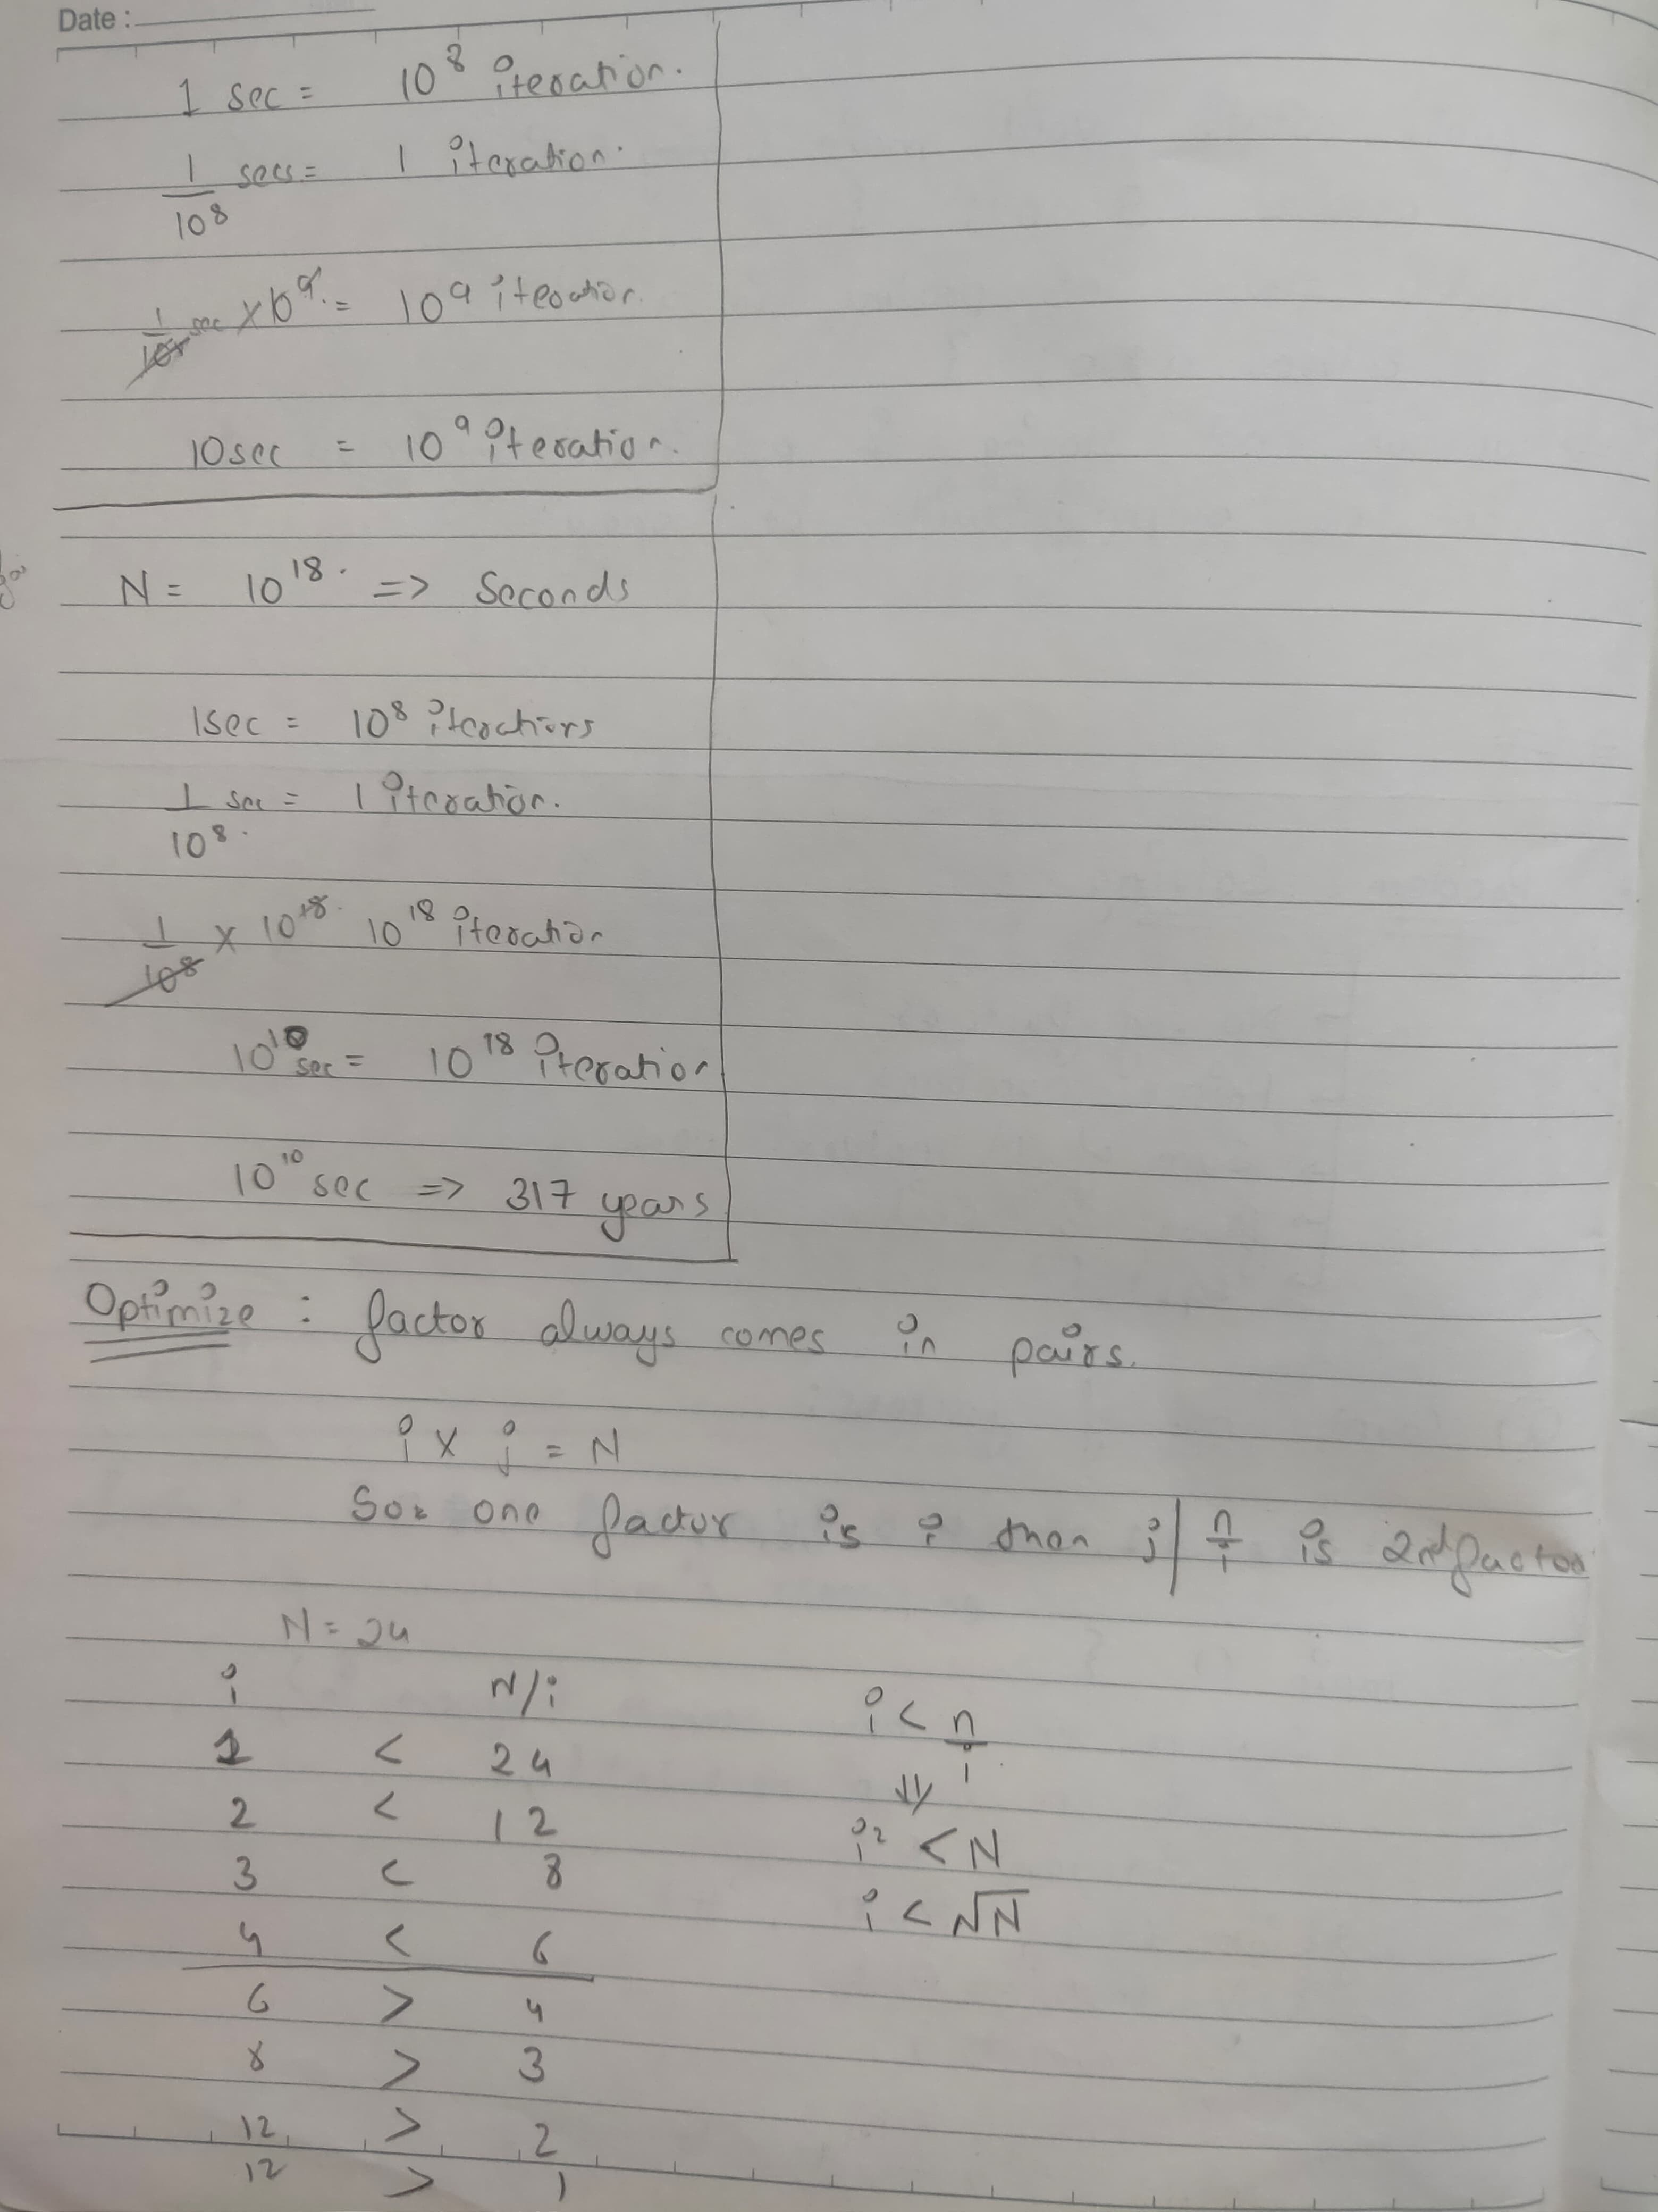 Date :
1 sec = 10⁸ iteration.
1/10⁸ secs = 1 iteration.
1/10⁸ sec × 10⁹ = 10⁹ iteration.
10 sec = 10⁹ iteration.
N = 10¹⁸. => Seconds
1 sec = 10⁸ iterations
1/10⁸ sec = 1 iteration.
1/10⁸ × 10¹⁸ 10¹⁸ iteration
10¹⁰ sec = 10¹⁸ iteration
10¹⁰ sec => 317 years
Optimize : factor always comes in pairs.
i × j = N
So one factor is i then j | n/i is 2nd factor
N = 24
i N/i i < n/i
1 < 24 ⇓
2 < 12 i² < N
3 < 8 i < √N
4 < 6
6 > 4
8 > 3
12 > 2
12 > 1